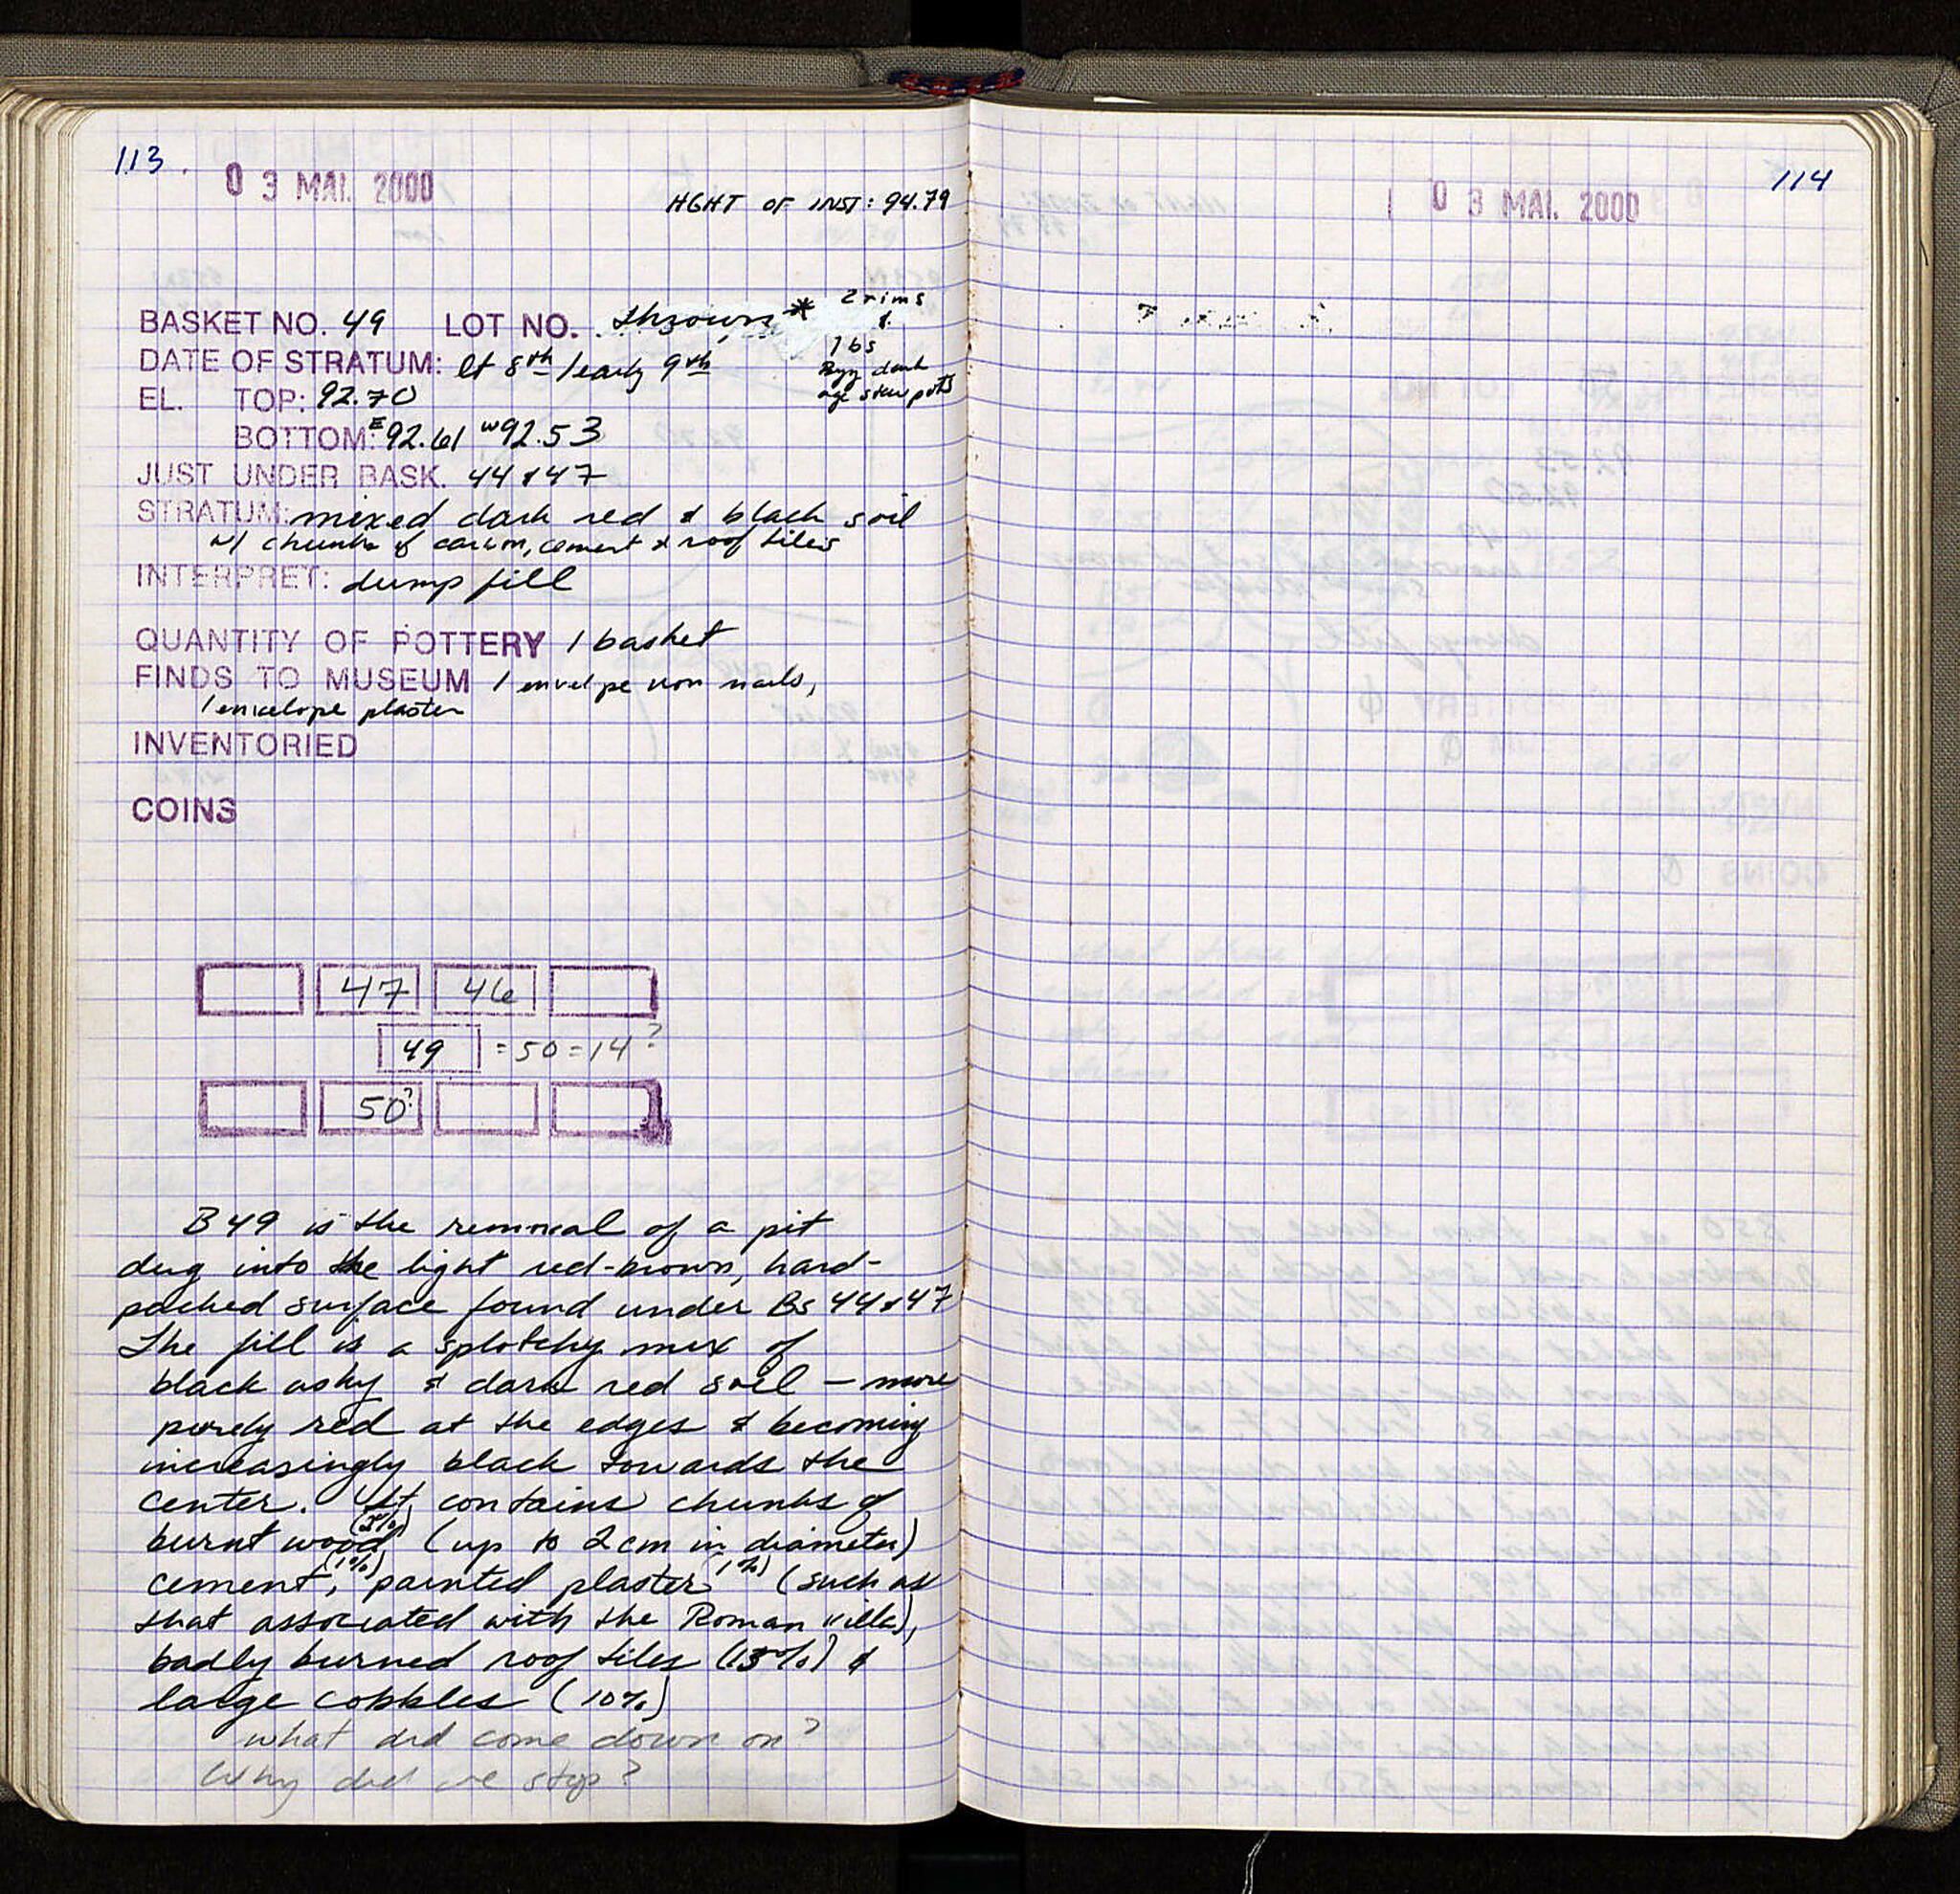 113.
0 3 MAI. 2000
HGHT OF INST: 94.79
BASKET NO. 49 LOT NO. thrown *
2 rims
&
1 bs
Byz dark
age stew pots
DATE OF STRATUM: lt 8th / early 9th
EL. TOP: 92.70
BOTTOM: E 92.61 W 92.53
JUST UNDER BASK. 44 & 47
STRATUM: mixed dark red & black soil
w/ chunks of carbon, cement & roof tiles
INTERPRET: dump fill
QUANTITY OF POTTERY 1 basket
FINDS TO MUSEUM 1 envelope iron nails,
1 envelope plaster
INVENTORIED
COINS
47 46
49 = 50 = 14?
50?
B 49 is the removal of a pit
dug into the light red-brown, hard-
packed surface found under Bs 44 & 47
The fill is a splotchy mix of
black ashy & dark red soil – more
purely red at the edges & becoming
increasingly black towards the
center. It contains chunks of
burnt wood (2%) (up to 2cm in diameter)
cement (1%), painted plaster (1%) (such as
that associated with the Roman villa),
badly burned roof tiles (15%) &
large cobbles (10%)
what did come down on?
Why did we stop?
114
0 3 MAI. 2000